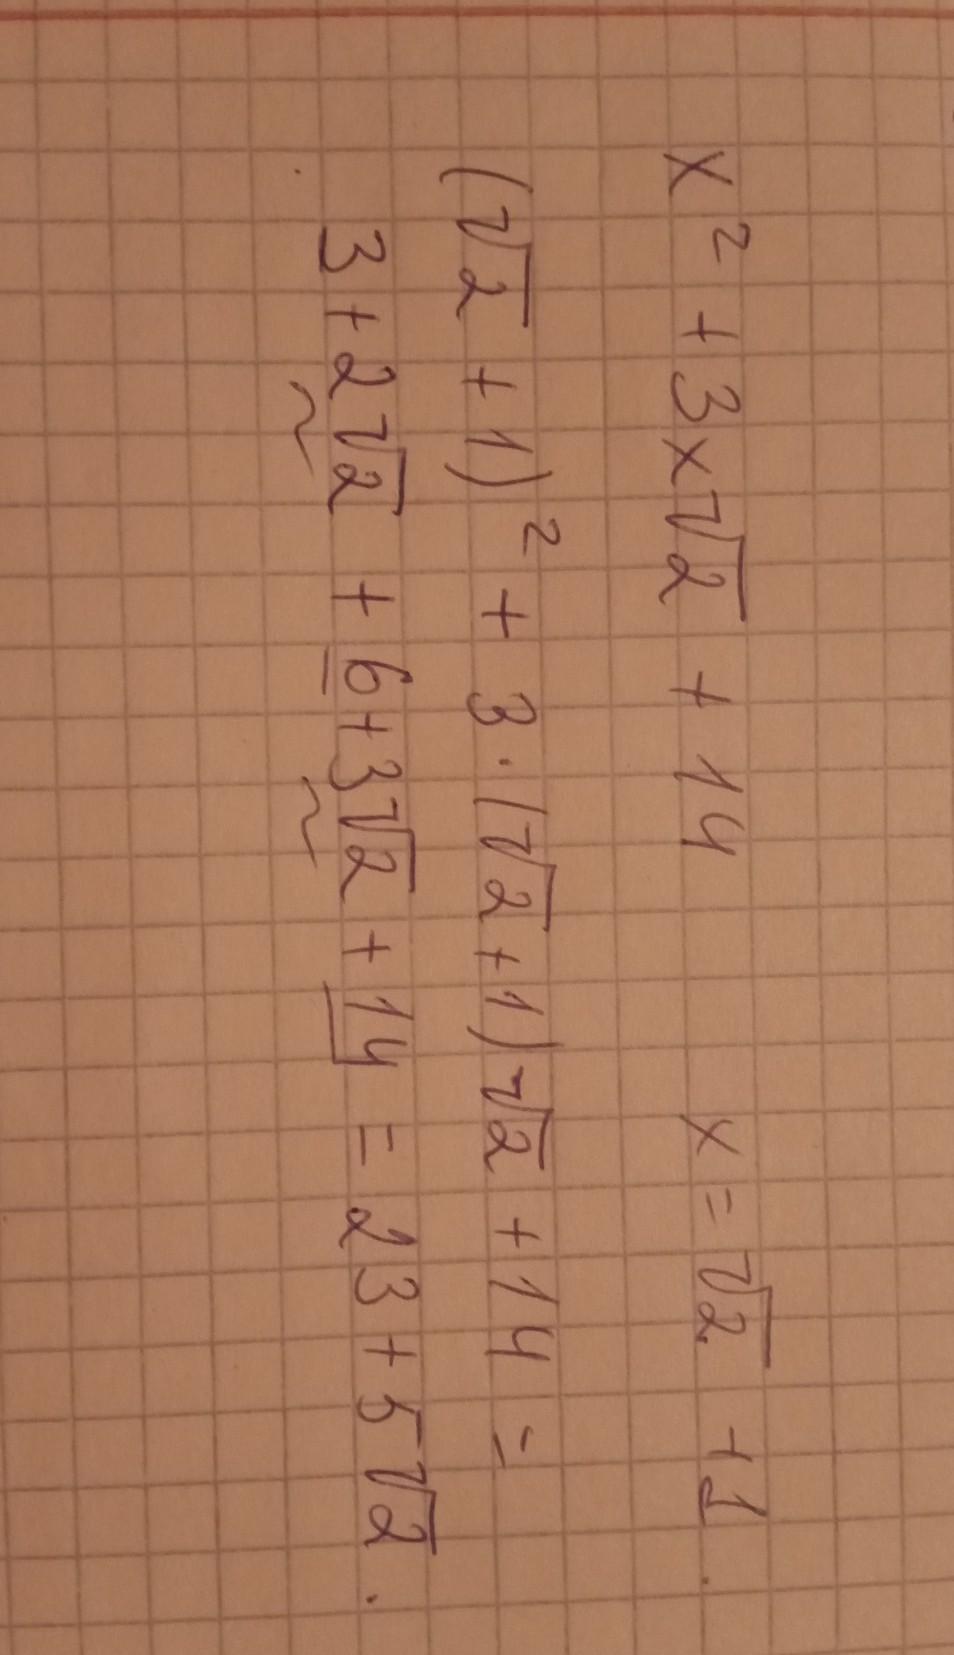 x² + 3x√2 + 14 x = √2 + 1.
(√2 + 1)² + 3 · (√2 + 1)√2 + 14 =
3 + 2√2 + 6 + 3√2 + 14 = 23 + 5√2.